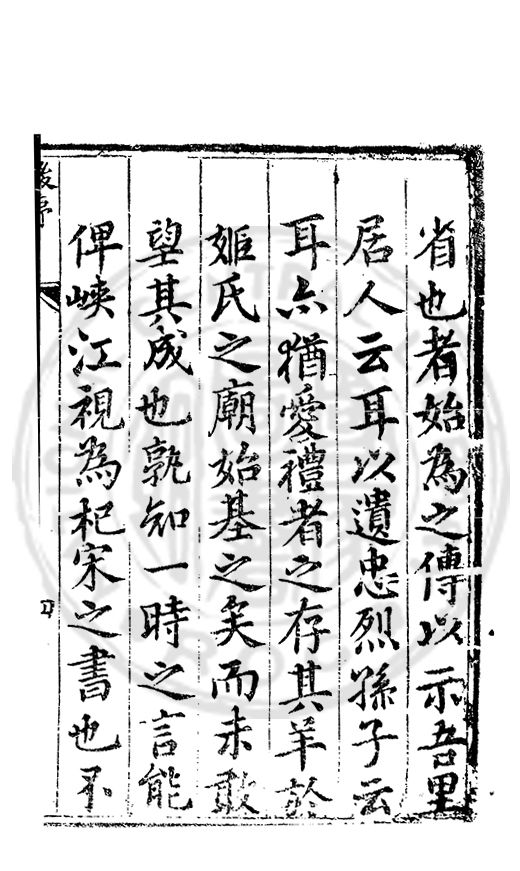 省也者始為之傳以示吾里
居人云耳以遺忠烈孫子云
耳亦猶愛禮者之存其羊於
姬氏之廟始基之矣而未敢
望其成也孰知一時之言能
俾峽江視為杞宋之書也不
後序
四